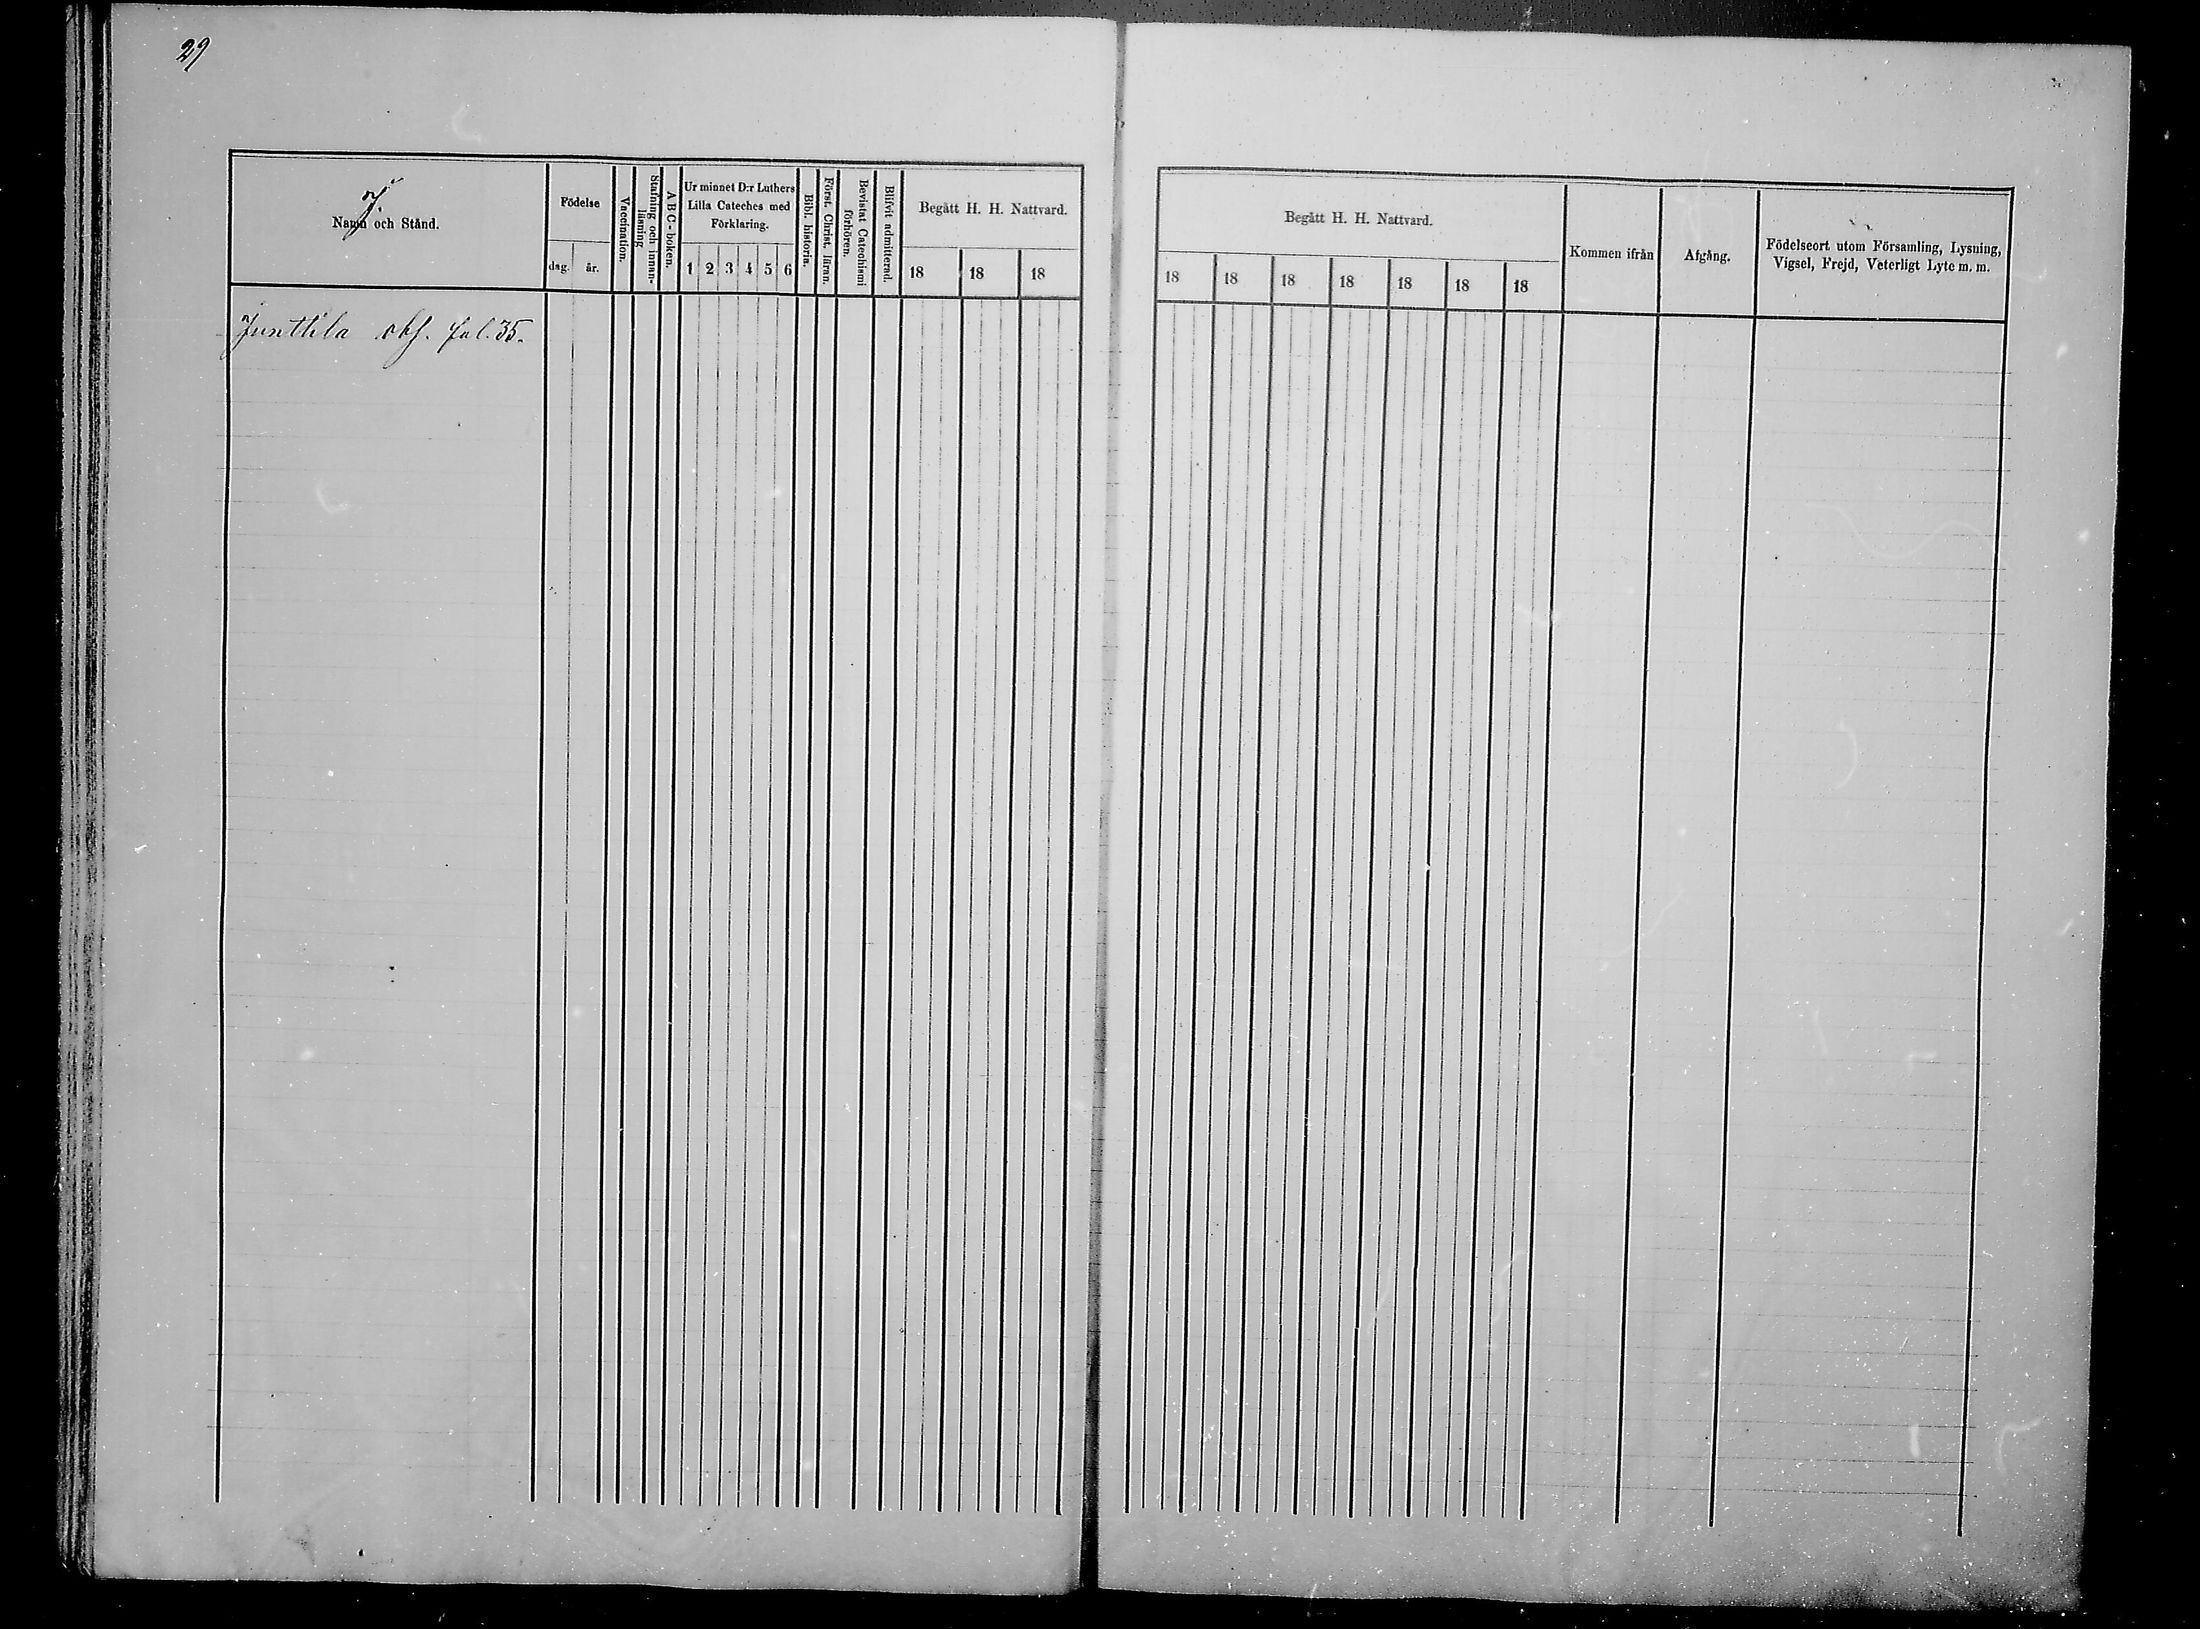 29
J.
Namn och Stånd.
Födelse
dag. år.
Vaccination.
Stafning och innan-
läsning
A B C-boken.
Ur minnet D:r Luthers
Lilla Cateches med
Förklaring.
1 2 3 4 5 6
Bibl. historia.
Först. Christ. läran.
Bevistat Catechismi
förhören.
Blifvit admitterad.
Begått H. H. Nattvard.
18 18 18
Junttila fol. 35.
Begått H. H. Nattvard.
18 18 18 18 18 18 18
Kommen ifrån
Afgång.
Födelseort utom Församling, Lysning,
Vigsel, Frejd, Veterligt Lyte m. m.